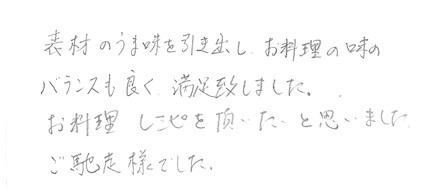 素材のうま味を引き出し、お料理の味の
バランスも良く 満足致しました。
お料理 レシピを頂いたいと思いました
ご馳走様でした。